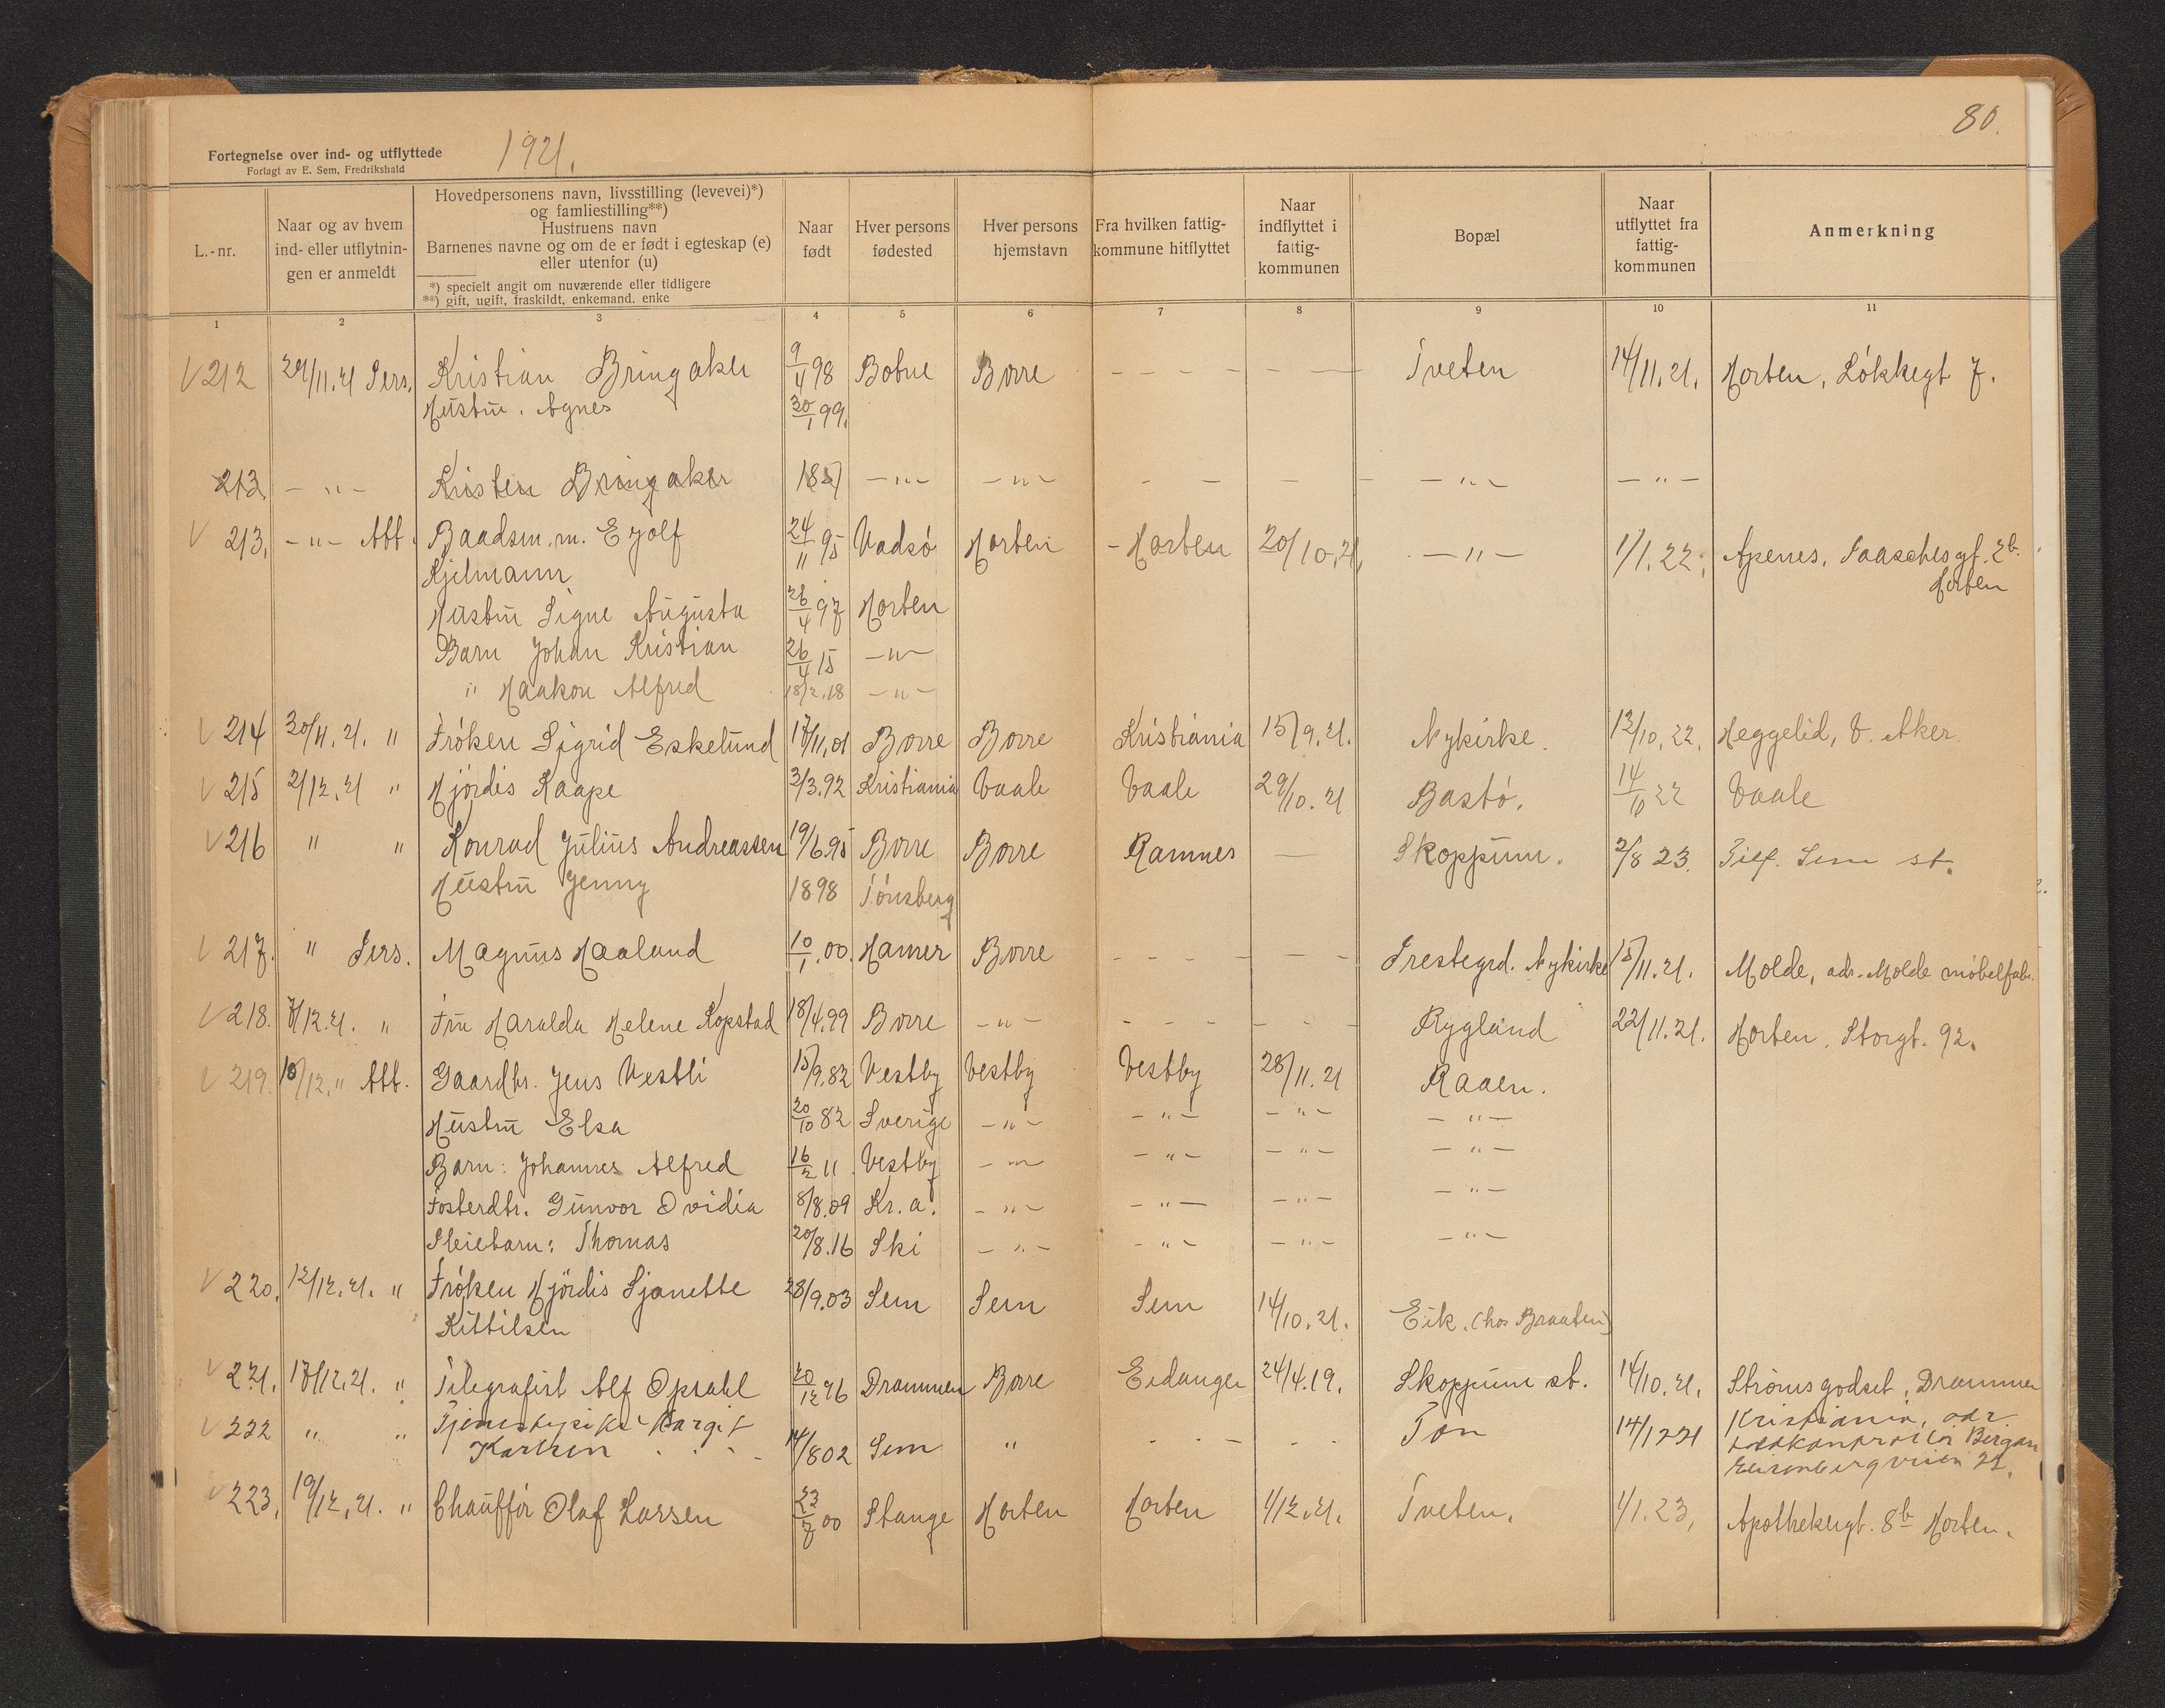 80.
1921.
Fortegnelse over ind- og utflyttede
Forlagt av E. Sem, Fredrikshald
L.-nr.
Naar og av hvem ind- eller utflytnin- gen er anmeldt
Hovedpersonens navn, livsstilling (levevei)*)
og famliestilling**)
Hustruens navn
Barnenes navne og om de er født i egteskap (e)
eller utenfor (u)
*) specielt angit om nuværende eller tidligere
**) gift, ugift, fraskildt, enkemand, enke
Naar født
Hver persons fødested
Hver persons hjemstavn
Fra hvilken fattig- kommune hitflyttet
Naar indflyttet i fattig- kommunen
Bopæl
Naar utflyttet fra fattig- kommunen
Anmerkning
1 2 3 4 5 6 7 8 9 10 11
√ 212 29/11.21 Pers. Kristian Bringaker 9/4 98 Botne Borre - - - - - — Tveten 14/11.21. Horten, Løkkegt 7.
Hustru. Agnes 30/1 99.
213. - " - Kristen Bringaker - " - - " - - - - - - " - - " -
√ 213. - " - Att. Baadsm.m. Eyolf 24/11 95 Vadsø Horten - Horten 20/10.21 - " - 1/1.22. Apenes, Faaschesgt. 2b.
Kjelmann Horten
Hustru Signe Augusta 26/4 97 Horten
Barn Johan Kristian 26/4 15 - " -
" Haakon Alfred 18/2.18 - " -
√ 214 30/11.21. " Frøken Sigrid Eskelund 17/11.01 Borre Borre Kristiania 15/9.21. Nykirke. 12/10.22. Heggelid, V. Aker.
√ 215 2/12.21 " Hjördis Kaape 3/3.92 Kristiania Vaale Vaale 29/10.21 Bastø. 14/10 22 Vaale
√ 216 " " Konrad Julius Andreassen 19/6.95 Borre Borre Ramnes — Skoppum. 2/8 23. Sem st.
Hustru Jenny 1898 Tønsberg
√ 217. " Pers. Magnus Haaland 10/1.00. Hamer Borre - - - - - - Prestegrd. Nykirke 15/11.21. Molde, adr. Molde møbelfabr.
√ 218. 7/12.21. " Fru Haralda Helene Kopstad 18/4.99 Borre - " - - - - - - - Rygland 22/11.21. Horten, Storgt. 92.
√ 219. 10/12. " Att. Gaardbr. Jens Vestli 15/9.82 Vestby Vestby Vestby 28/11.21 Raaen.
Hustru Elsa 20/10 82 Sverige - " - - " - - " - - " -
Barn: Johannes Alfred 16/2 11 Vestby - " - - " - - " - - " -
Fosterdtr. Gunvor Ovidia 8/8.09 Kr.a. - " - - " - - " - - " -
Pleiebarn: Thomas 20/8.16 Ski - " - - " - - " - - " -
√ 220. 12/12.21. " Frøken Hjördis Sjanette 28/9.03 Sem Sem Sem 14/10.21. Eik. (hos Braaten)
Kittilsen
√ 221. 17/12.21. " Telegrafist Alf Opsahl 20/12 96 Drammen Borre Eidanger 24/4.19. Skoppum st. 14/10.21. Strømsgodset, Drammen
√ 222 " " Tjenestepike Margit Kristiania, adr.
Karlsen 14/8 02 Sem " - - - - - Ton 14/12 21 Bergan
√ 223. 19/12.21. " Chauffør Olaf Larsen 23/7 00 Stange Horten Horten 1/12.21. Tveten. 1/1.23. Apothekergt. 8b Horten.